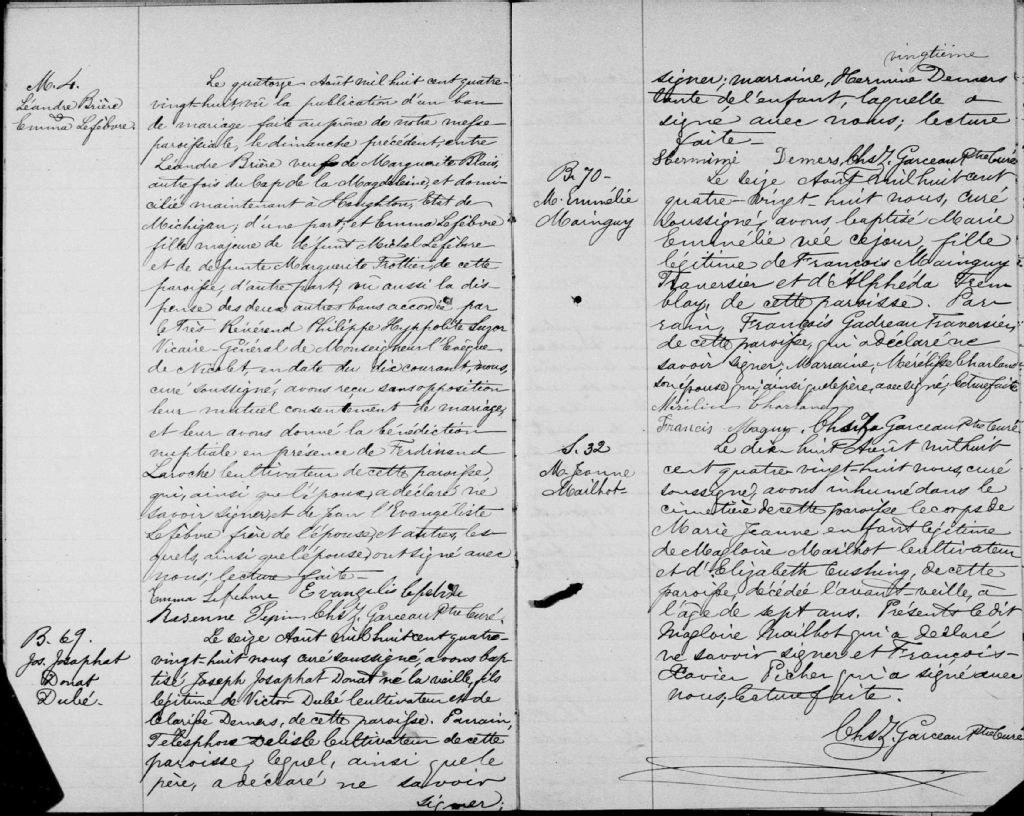 M. 4.
Léandre Brière
&
Emma Lefebvre.
Le quatorze Août mil huit cent quatre-
vingt-huit, vu la publication d'un ban
de mariage faite au prône de notre messe
paroissiale, le dimanche précédent, entre
Léandre Brière veuf de Marguerite Blais,
autrefois du Cap de la Magdeleine, et domi-
cilié maintenant à Houghton, Etat de
Michigan, d'une part; et Emma Lefebvre
fille majeure de defunt Michel Lefebvre
et de defunte Marguerite Trottier, de cette
paroisse, d'autre part; vu aussi la dis-
pense des deux autres bans accordée par
le Très Révérend Philippe Hyppolite Suzor
Vicaire-Général de Monseigneur l'Evêque
de Nicolet, en date du dix courant, nous,
curé soussigné, avons reçu sans opposition
leur mutuel consentement de mariage,
et leur avons donné la bénédiction
nuptiale en présence de Ferdinand
Laroche cultivateur de cette paroisse,
qui, ainsi que l'époux, a déclaré ne
savoir signer, et de Jean l'Evangeliste
Lefebvre frère de l'épouse, et autres, les-
quels, ainsi que l'épouse, ont signé avec
nous; lecture faite-
Emma Lefebvre Evangelis lefebvre
Pepin Chs Z. Garceau Ptre Curé.
B. 69.
Jos. Josaphat
Donat
Dubé.
Le seize Août mil huit cent quatre-
vingt-huit nous curé soussigné, avons bap-
tisé Joseph Josaphat Donat né la veille, fils
légitime de Victor Dubé Cultivateur et de
Clarisse Demers, de cette paroisse. Parrain,
Télesphore Delisle Cultivateur de cette
paroisse, lequel, ainsi que le
père, a déclaré ne savoir
signer;
vingtième
signer; marraine, Hermine Demers
tante de l'enfant, laquelle a
signé avec nous; lecture
faite-
Hermine Demers, Chs Z. Garceau Ptre Curé
B. 70-
M. Emmélie
Mainguy
Le seize Août mil huit cent
quatre-vingt-huit nous, curé
soussigné, avons baptisé Marie
Emmélie née ce jour, fille
légitime de François Mainguy
Traversier et d'Alphéda Trem-
blay, de cette paroisse. Par-
rain, François Gadreau Traversier,
de cette paroisse, qui a déclaré ne
savoir signer; Marraine, Mérélise Charland
son épouse qui, ainsi que le père, a signé; lecture faite
Charland
Francis Maguy. Chs Z. Garceau Ptre Curé
S. 32
M. Jeanne
Mailhot-
Le dix huit Août mil huit
cent quatre-vingt-huit nous, curé
soussigné, avons inhumé dans le
cimetière de cette paroisse le corps de
Marie Jeanne enfant légitime
de Magloire Mailhot Cultivateur
et d'Elizabeth Cushing, de cette
paroisse, décédée l'avant-veille, à
l'âge de sept ans. Présents le dit
Magloire Mailhot qui a déclaré
ne savoir signer et François-
Xavier Picher qui a signé avec
nous, lecture faite.
Chs Z. Garceau Ptre Curé